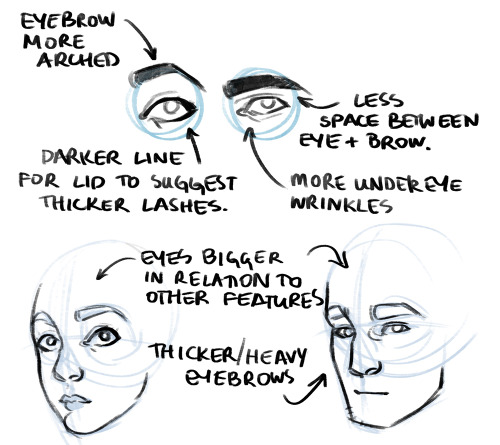 EYEBROW
MORE
ARCHED
LESS
SPACE BETWEEN
EYE + BROW.
DARKER LINE
FOR LID TO SUGGEST
THICKER LASHES.
MORE UNDEREYE
WRINKLES
EYES BIGGER
IN RELATION TO
OTHER FEATURES
THICKER/HEAVY
EYEBROWS